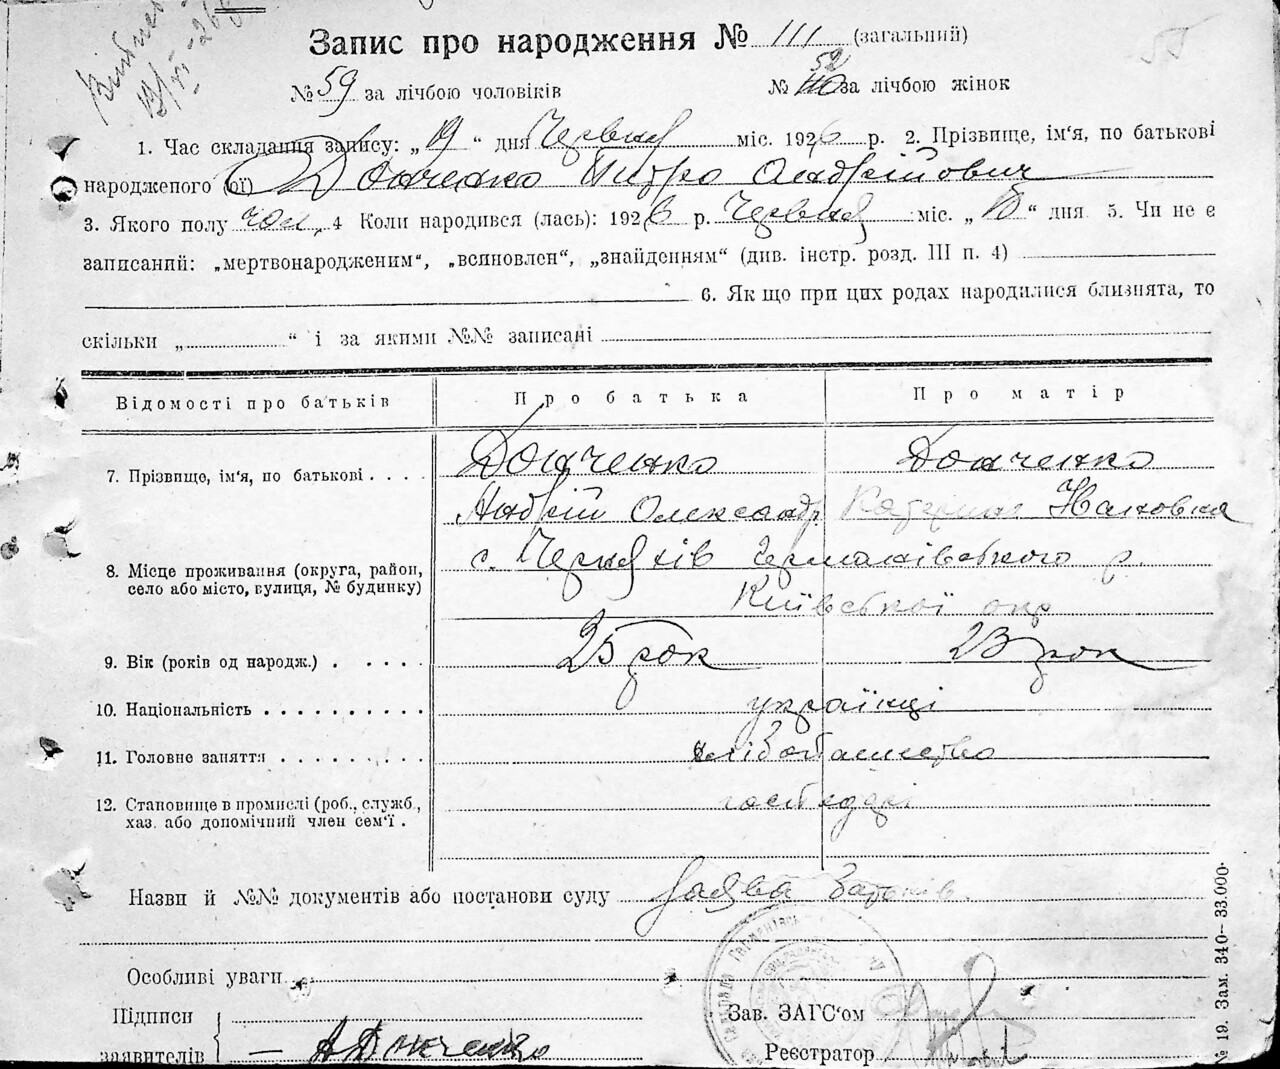 Запис про народження № 111 (загальний)
№ 59 за лічбою чоловіків № 52 за лічбою жінок
1. Час складання запису: „ 19 “ дня Червня міс. 1926 р. 2. Прізвище, ім'я, по батькові
народженого (ої) Донченко Андрійович
3. Якого полу чол. 4 Коли народився (лась): 1926 р. Червня міс. „ “ дня 5. Чи не є
записаний: „мертвонародженим“, „всиновлен“, „знайденням“ (див. інстр. розд. III п. 4)
6. Якщо при цих родах народилися близнята, то
скільки „ “ і за якими №№ записані
Відомості про батьків Про батька Про матір
7. Прізвище, ім'я, по батькові . . . . Донченко Донченко
Андрій Олександр Катерина Івановна
8. Місце проживання (округа, район, село або місто, вулиця, № будинку) с. Черняхів Германівського р.
Київської окр
9. Вік (років од народж.) . . . . . 25 рок 23 рок
10. Національність . . . . . . . . . . українці
11. Головне заняття . . . . . . . . . хліборобство
12. Становище в промислі (роб., служб., господарі
хаз. або допомічний член сем'ї .
Назви й №№ документів або постанови суду Заява батьків.
Особливі уваги
Підписи
заявителів — А Донченко
Зав. ЗАГС'ом
Реєстратор
№ 19. Зам. 340—33.000.